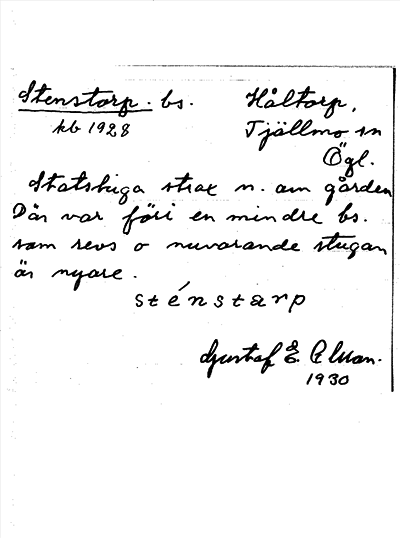 Stenstorp. bs. Håltorp,
kb 1928 Tjällmo sn
Ögl.
Statstuga strax n. om gården
Där var förr en mindre bs.
som revs o nuvarande stugan
är nyare.
sténstårp
Gustaf E.
1930